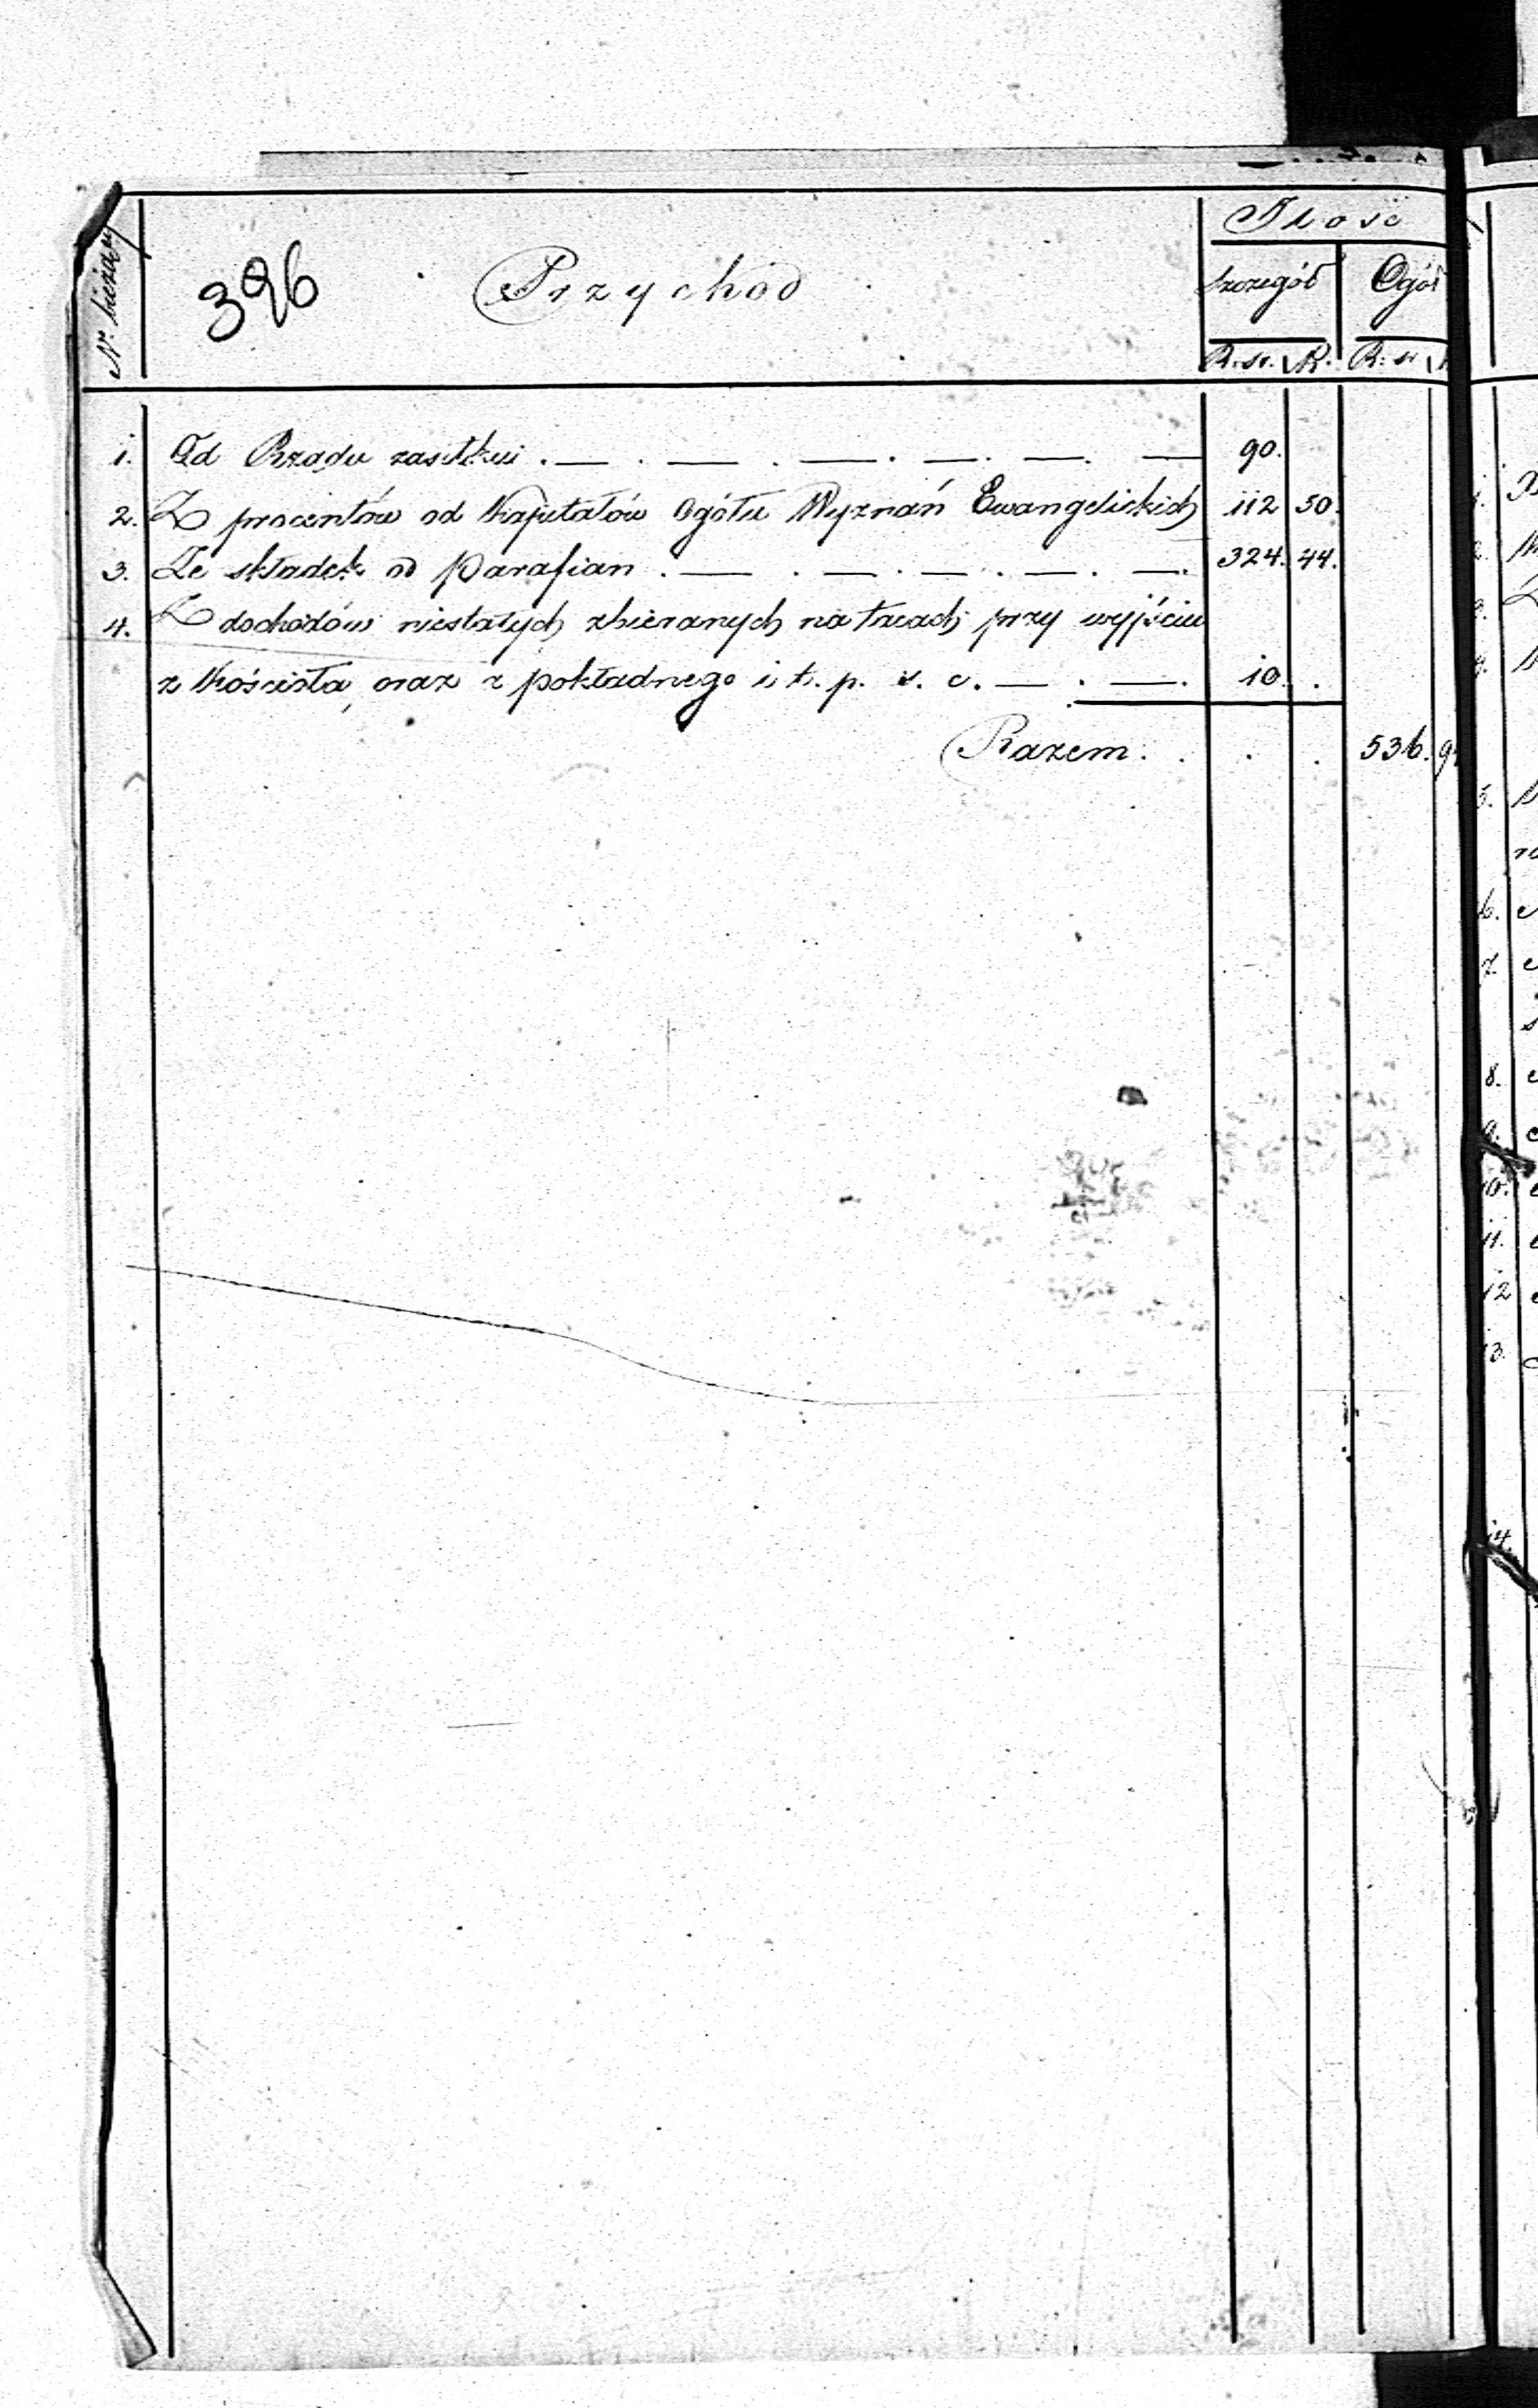 Nr bieżący
326
Przychód
Ilość
Szczegół
Ogół
R. sr. K. R. sr.
1. Od Rządu zasiłku . — . — . — . — . — . — 90.
2. Z procentów od Kapitałów Ogółu Wyznań Ewangelickich 112 50.
3. Ze składek od Parafian . — . — . — . — . — . 324. 44.
4. Z dochodów niestałych zbieranych na tacach przy wyjściu
z Kościoła, oraz z pokładnego i t. p. — . — . 10. .
Razem . . . . 536.